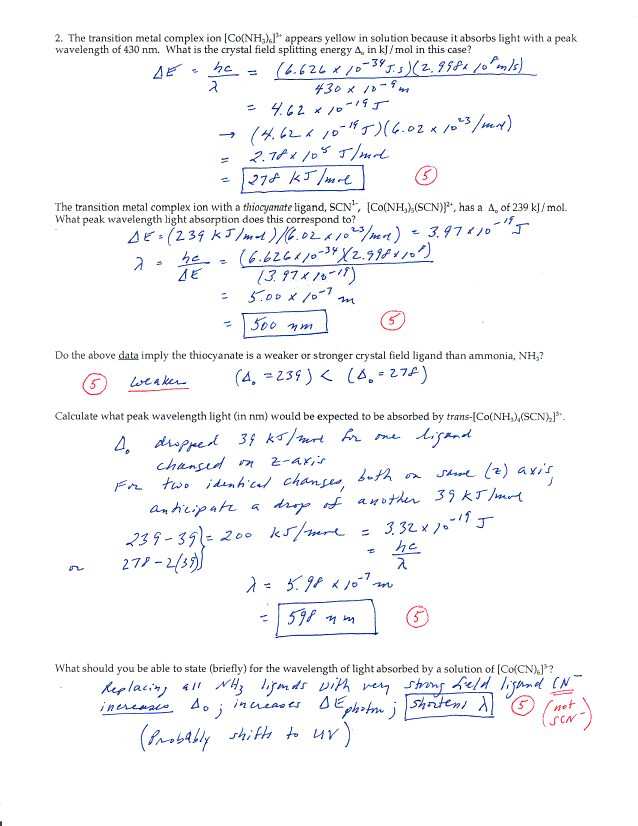 2. The transition metal complex ion [Co(NH₃)₆]³⁺ appears yellow in solution because it absorbs light with a peak
wavelength of 430 nm. What is the crystal field splitting energy Δₒ in kJ/mol in this case?
ΔE = hc/λ = (6.626 x 10⁻³⁴ J·s)(2.998 x 10⁸ m/s) / 430 x 10⁻⁹ m
= 4.62 x 10⁻¹⁹ J
→ (4.62 x 10⁻¹⁹ J)(6.02 x 10²³/mol)
= 2.78 x 10⁵ J/mol
= 278 kJ/mol (5)
The transition metal complex ion with a thiocyanate ligand, SCN¹⁻, [Co(NH₃)₅(SCN)]²⁺, has a Δₒ of 239 kJ/mol.
What peak wavelength light absorption does this correspond to?
ΔE = (239 kJ/mol)/(6.02 x 10²³/mol) = 3.97 x 10⁻¹⁹ J
λ = hc/ΔE = (6.626 x 10⁻³⁴)(2.998 x 10⁸) / (3.97 x 10⁻¹⁹)
= 5.00 x 10⁻⁷ m
= 500 nm (5)
Do the above data imply the thiocyanate is a weaker or stronger crystal field ligand than ammonia, NH₃?
(5) weaker (Δₒ = 239) < (Δₒ = 278)
Calculate what peak wavelength light (in nm) would be expected to be absorbed by trans-[Co(NH₃)₄(SCN)₂]¹⁺.
Δₒ dropped 39 kJ/mol for one ligand
changed on z-axis
For two identical changes, both on same (z) axis,
anticipate a drop of another 39 kJ/mol
239-39 } = 200 kJ/mol = 3.32 x 10⁻¹⁹ J
or 278-2(39) } = hc/λ
λ = 5.98 x 10⁻⁷ m
= 598 nm (5)
What should you be able to state (briefly) for the wavelength of light absorbed by a solution of [Co(CN)₆]³⁻?
Replacing all NH₃ ligands with very strong field ligand CN⁻
increases Δₒ; increases ΔE photon; shortens λ (5) (not SCN⁻)
(Probably shifts to UV)